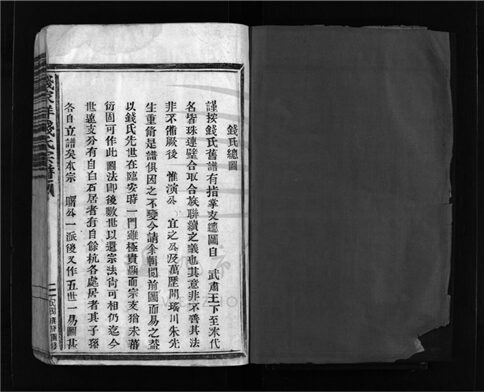 錢氏總圖
謹按錢氏舊譜有指掌支總圖自 武肅王下至末代
名皆珠連璧合取合族聯續之義也其意非不善其法
非不備厥後 惟演公 宜之公及萬歷間瑤川朱先
生重脩是譜俱因之不變今請全輯閱前圖而易之蓋
以錢氏先世在臨安時一門雖極貴顯而宗支猶未蕃
衍固可作此圖法卽後數世以還宗法尚可相仍迄今
世遠支分有自白石居者有自餘杭各處居者其子孫
各自立譜矣本宗 公一派後又作五世一易圖其